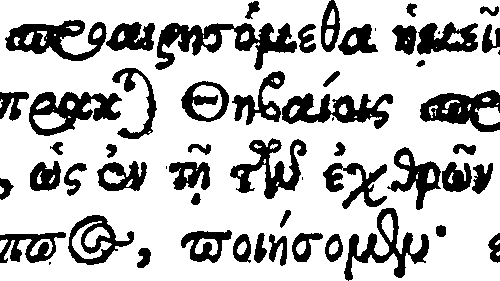 προαιρησόμεθα ἡμεῖ
πρακται Θηβαίοις πρ
, ὡς ἐν τῇ τῶν ἐχθρῶν
ππος, ποιήσομεν·